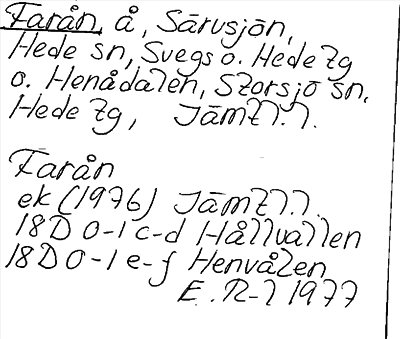 Farån, å, Särvsjön,
Hede sn, Svegs o. Hede tg
o. Henådalen, Storsjö sn,
Hede tg, Jämtl.l.
Farån
ek (1976) Jämtl.l.
18D 0-1 c-d Hållvallen
18D 0-1 e-f Henvålen
E. R-l 1977